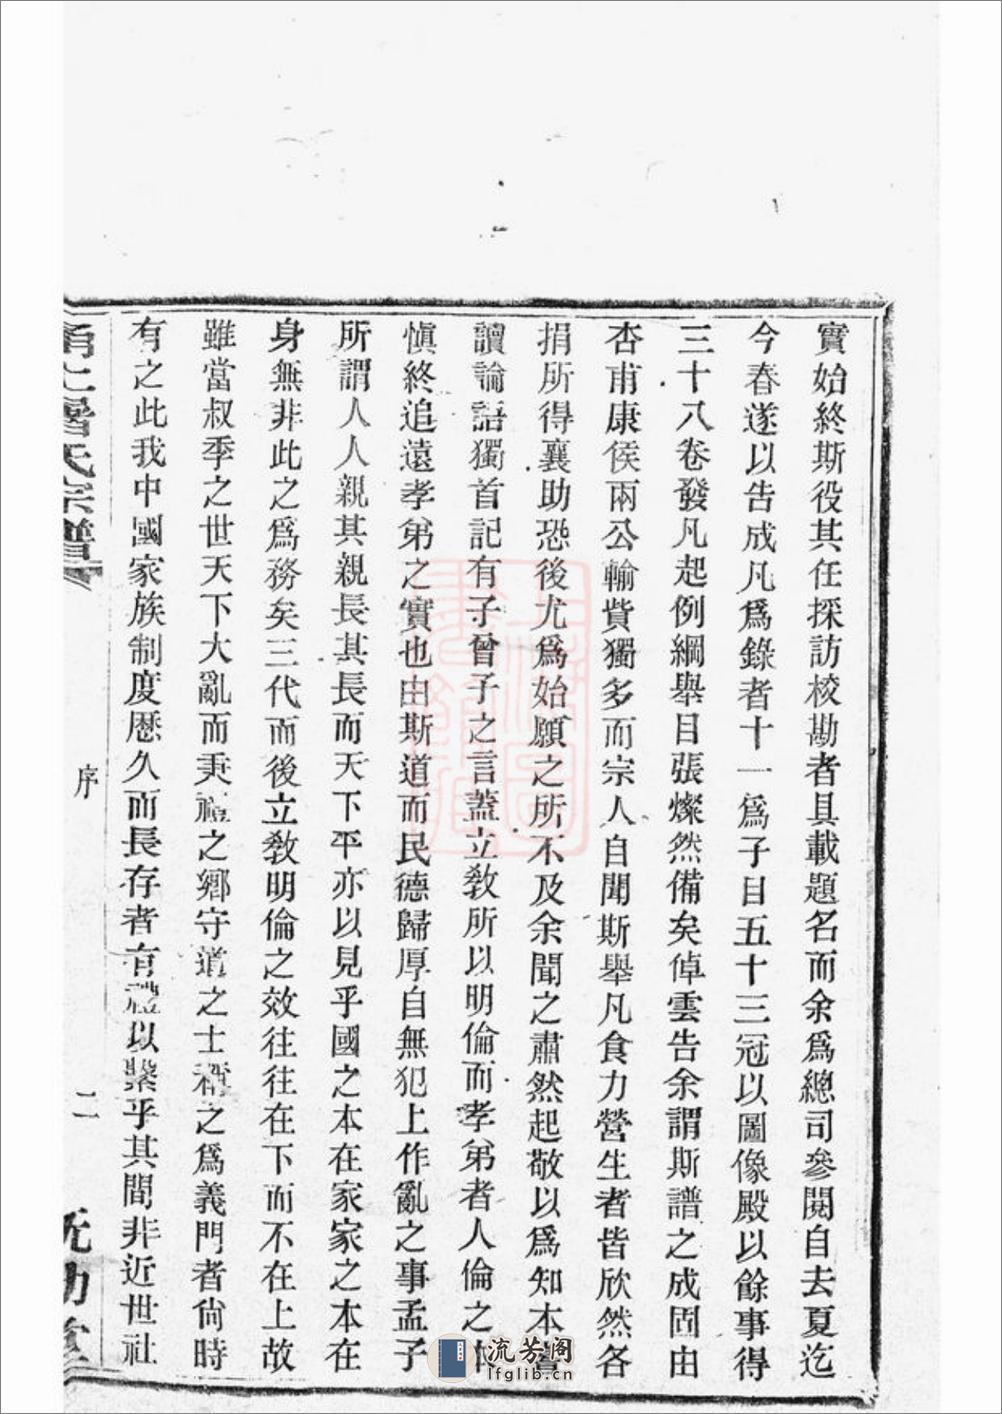 實始終斯役其任採訪校勘者具載題名而余爲總司參閱自去夏迄
今春遂以告成凡爲錄者十一爲子目五十三冠以圖像殿以餘事得
三十八卷發凡起例綱舉目張燦然備矣倬雲告余謂斯譜之成固由
杏甫康侯兩公輸貲獨多而宗人自聞斯舉凡食力營生者皆欣然各
捐所得襄助恐後尤爲始願之所不及余聞之肅然起敬以爲知本
讀論語獨首記有子曾子之言蓋立敎所以明倫而孝弟者人倫之本
愼終追遠孝弟之實也由斯道而民德歸厚自無犯上作亂之事孟子
所謂人人親其親長其長而天下平亦以見乎國之本在家家之本在
身無非此之爲務矣三代而後立敎明倫之效往往在下而不在上故
雖當叔季之世天下大亂而秉禮之鄉守道之士稱之爲義門者尙時
有之此我中國家族制度歷久而長存者有禮以繫乎其間非近世社
氏宗譜
序
二
上海圖書館藏
流芳阁
lfglib.cn